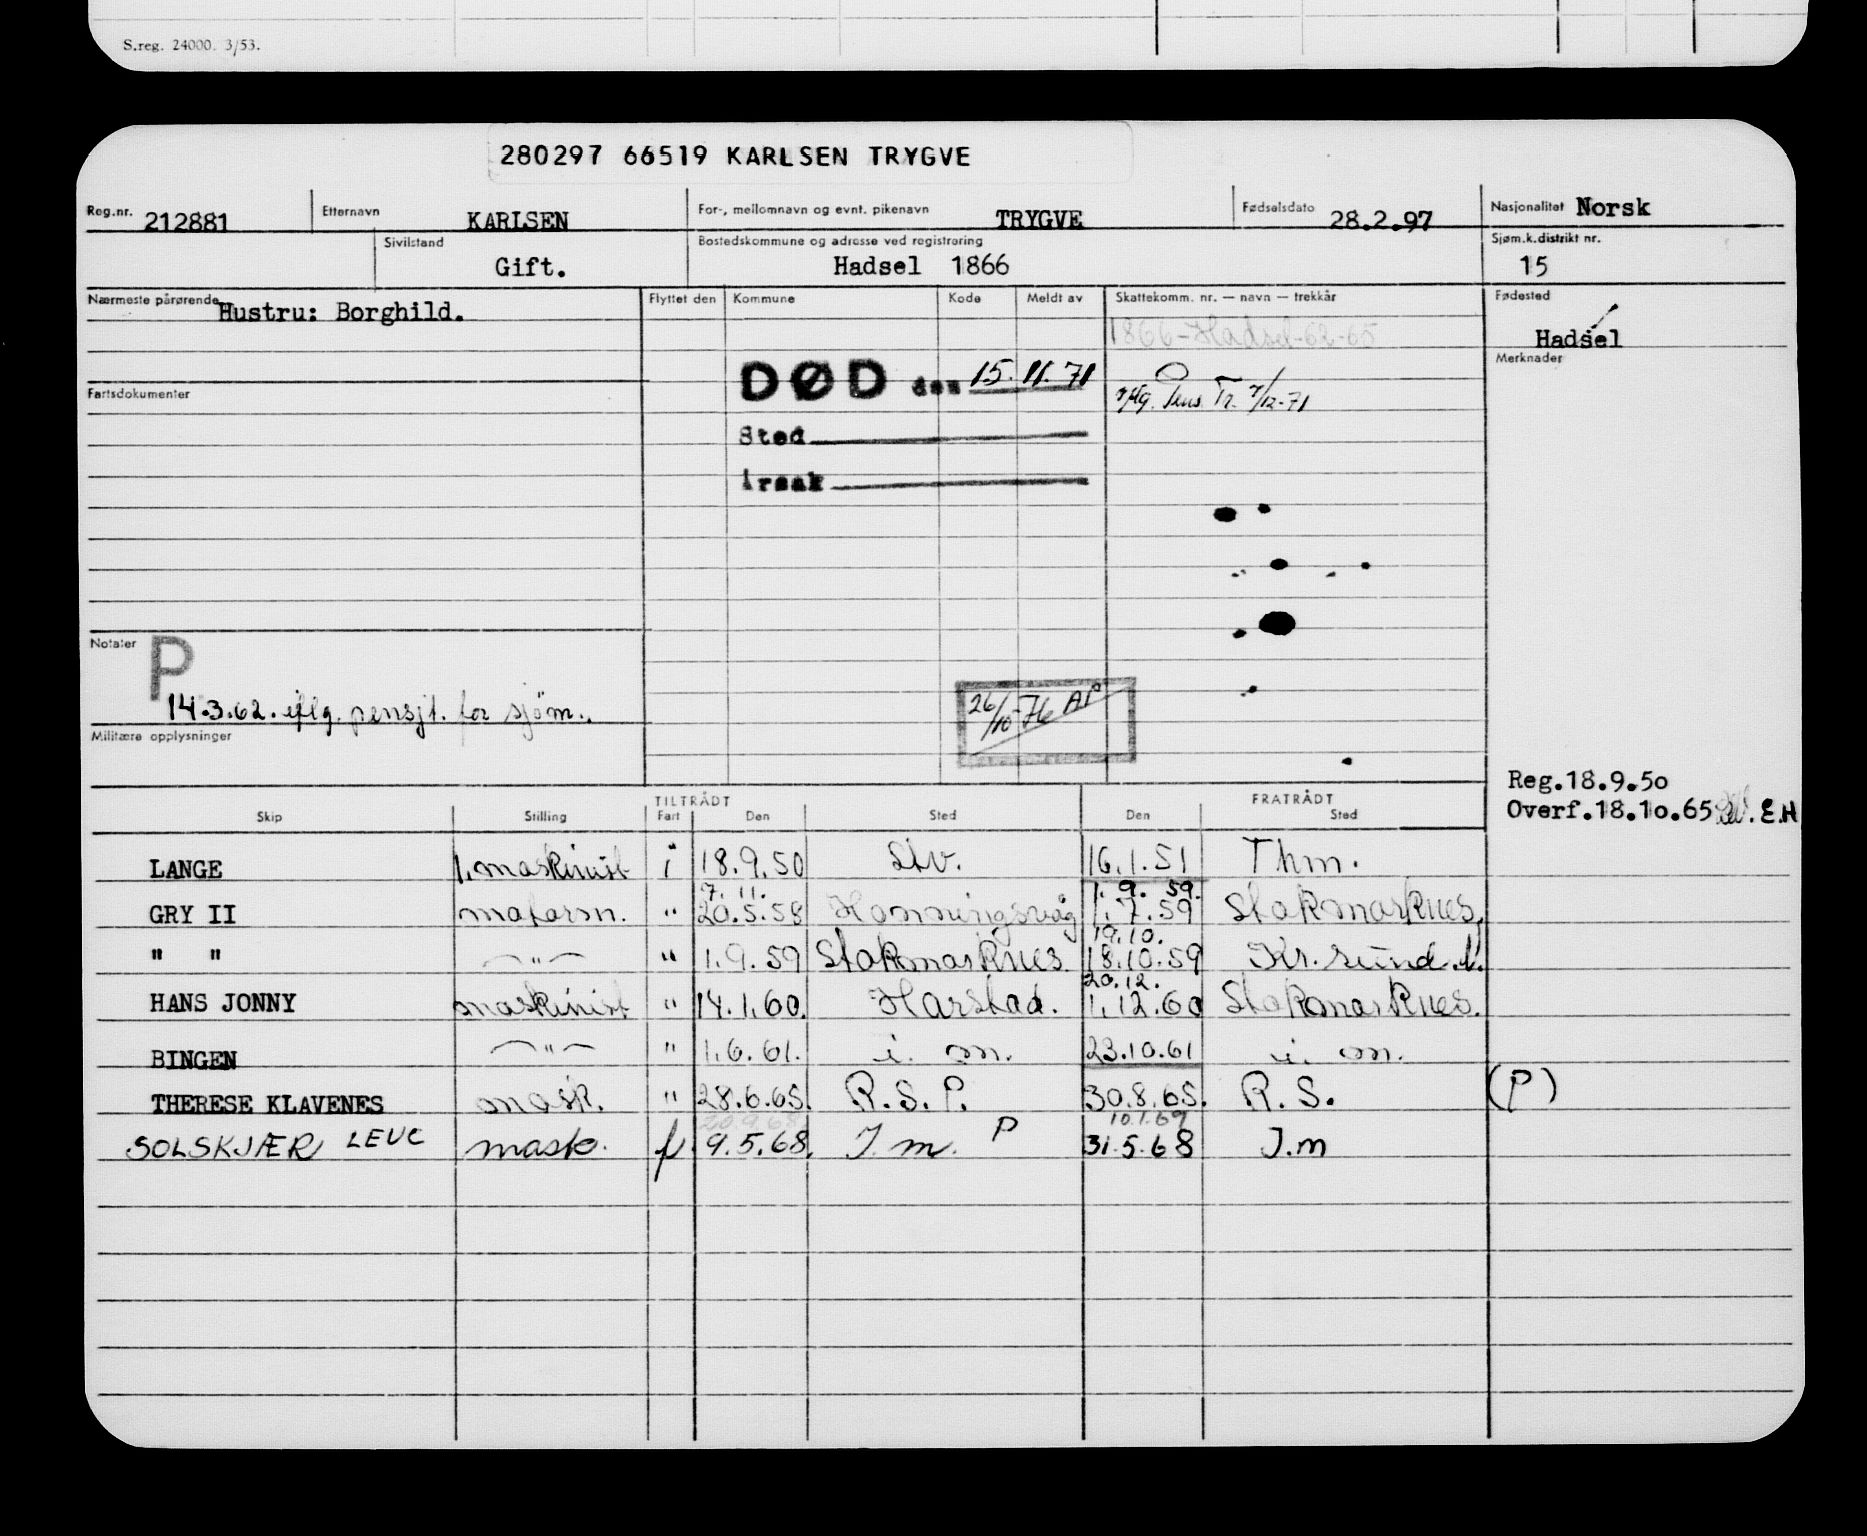 S.reg. 24000. 3/53.
280297 66519 KARLSEN TRYGVE
Reg.nr. 212881 Etternavn KARLSEN For-, mellomnavn og evnt. pikenavn TRYGVE Fødselsdato 28.2.97 Nasjonalitet Norsk
Sivilstand Gift. Bostedskommune og adresse ved registrering Hadsel 1866 Sjøm.k.distrikt nr. 15
Nærmeste pårørende Hustru: Borghild. Flyttet den Kommune Kode Meldt av Skattekomm. nr. — navn — trekkår Fødested
1866-Hadsel-62-65 Hadsel
Merknader
DØD den 15.11.71
Fartsdokumenter
iflg. Pens. Tr. 7/12-71
Sted
Årsak
Notater P
14.3.62. iflg. pensjt. for sjöm..
26/10-76 AP
Militære opplysninger
Reg.18.9.50
Overf.18.10.65 E.H
TILTRÅDT FRATRÅDT
Skip Stilling Fart Den Sted Den Sted
LANGE 1. maskinist i 18.9.50 Slv. 16.1.51 Thm.
7.11. 1.9.59.
GRY II matarsn. " 20.5.58 Honningsvåg 1.7.59 Stokmarknes.
19.10.
" " -"- " 1.9.59 Stokmarknes 18.10.59 Kr.sund.N.
20.12.
HANS JONNY maskinist " 14.1.60. Harstad. 1.12.60 Stokmarknes.
BINGEN -"- " 1.6.61. i. m. 23.10.61 i. m.
THERESE KLAVENES mask. " 28.6.65. R.S.P. 30.8.65. R.S. (P)
20.9.68. 10.1.69
SOLSKJÆR LEUC mask. f 9.5.68. I.m. P 31.5.68 I.m